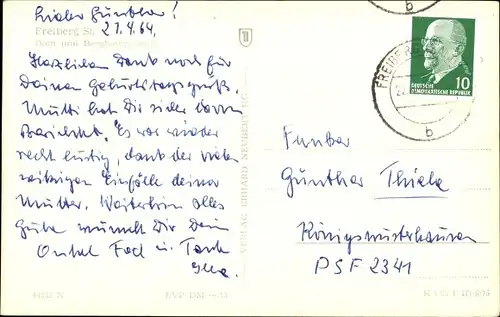 Lieber Günther!
Freiberg Sa.
27.4.64.
Dom und
Herzlichen Dank noch für
Deinen Geburtstagsgruß.
Mutti hat Dir sicher davon
berichtet. Es war wieder
recht lustig, dank der vielen
witzigen Einfälle deiner
Mutter. Weiterhin alles
Gute wünscht Dir Dein
Onkel u. Tante
Ilse.
VERLAG ERHARD NEUBERT KG
EVP DM
FREIBERG
b
b
10
DEUTSCHE
DEMOKRATISCHE REPUBLIK
Funker
Günther Thiele
Königswusterhausen
PSF 2341